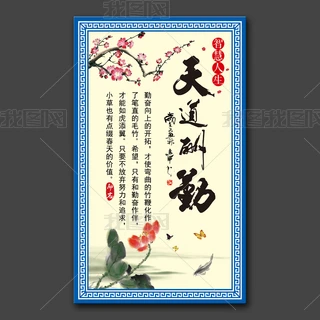 智慧人生
天道酬勤
勤奋向上的开拓，才使弯曲的竹鞭化作
了笔直的毛竹、希望，只有和勤奋作伴，
才能如虎添翼。只要不放弃努力和追求，
小草也有点缀春天的价值。